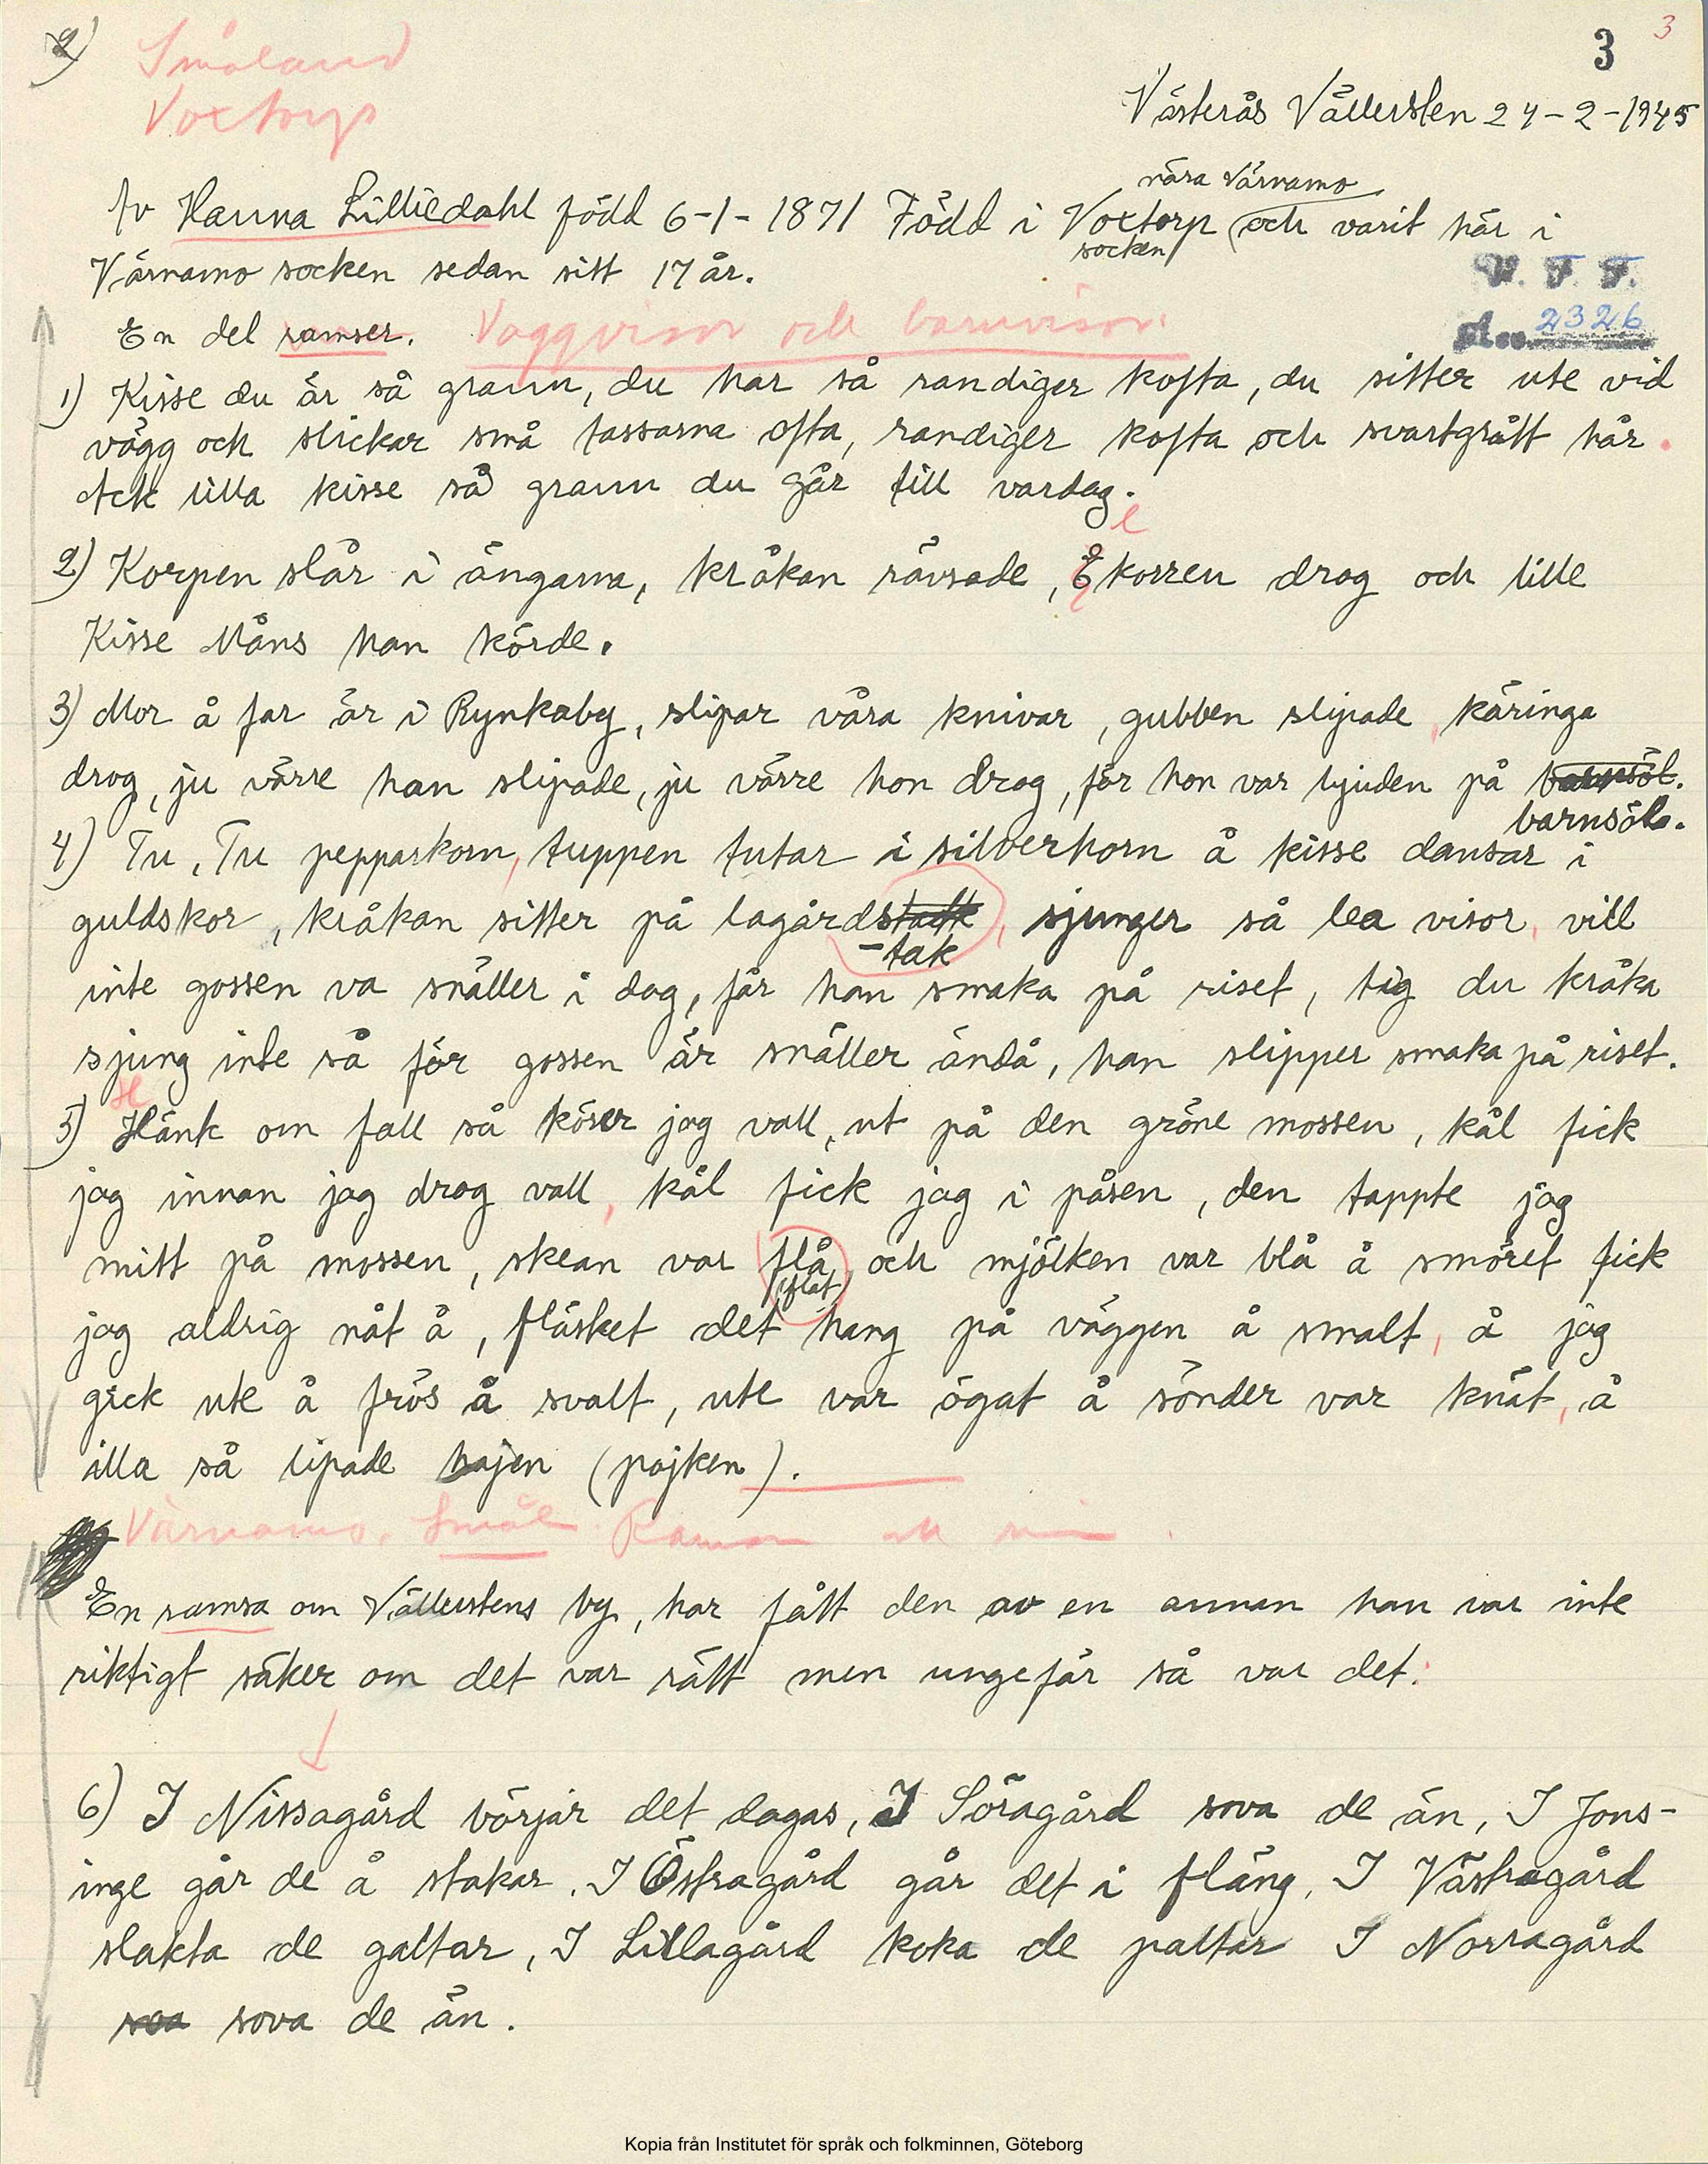 2)
Småland
Voxtorp
3
3
Västerås Vållersten 24-2-1945
nära Värnamo
Av Hanna Lilliedahl född 6-1-1871 Född i Voxtorp och varit här i
socken
Värnamo socken sedan sitt 17 år.
V. F. F.
2326
En del ramser. Vaggvisor och barnvisor.
1) Kisse du är så grann, du har så randiger kofta, du sitter ute vid
vägg och slickar små tassarna ofta, randiger kofta och svartgrått hår.
Ack lilla kisse så grann du går till vardag.
2) Korpen slår i ängarna, kråkan rävsade, Ekorren drog och lille
Kisse Måns han körde.
3) Mor å far är i Rynkaby, slipar våra knivar, gubben slipade, käringa
drog, ju värre han slipade, ju värre hon drog, för hon var bjuden på barnsöl.
barnsöl.
4) Tu, Tu pepparkorn, tuppen tutar i silverhorn å kisse dansar i
guldskor, kråkan sitter på lagårdstatk, sjunger så lea visor, vill
-tak
inte gossen va snäller i dag, får han smaka på riset, tig du kråka
sjung inte så för gossen är snäller ändå, han slipper smaka på riset.
5) Hänk om fall så köser jag vall, ut på den gröne mossen, kål fick
jag innan jag drog vall, kål fick jag i påsen, den tappte jag
mitt på mossen, skean var flå och mjölken var blå å smöret fick
flat
jag aldrig nåt å, fläsket det hang på väggen å smalt, å jag
gick ute å frös å svalt, ute var ögat å sönder var knät, å
illa så lipade hajen (pojken).
Värnamo. Smål.
En ramsa om Vällerstens by, har fått den av en annan han var inte
riktigt säker om det var rätt men ungefär så var det:
6) I Nissagård börjar det dagas, I Söragård sova de än, I Jons-
inge går de å stakar. I Östragård går det i fläng, I Västragård
slakta de galtar, I Lillagård koka de paltar I Norragård
soa sova de än.
Kopia från Institutet för språk och folkminnen, Göteborg